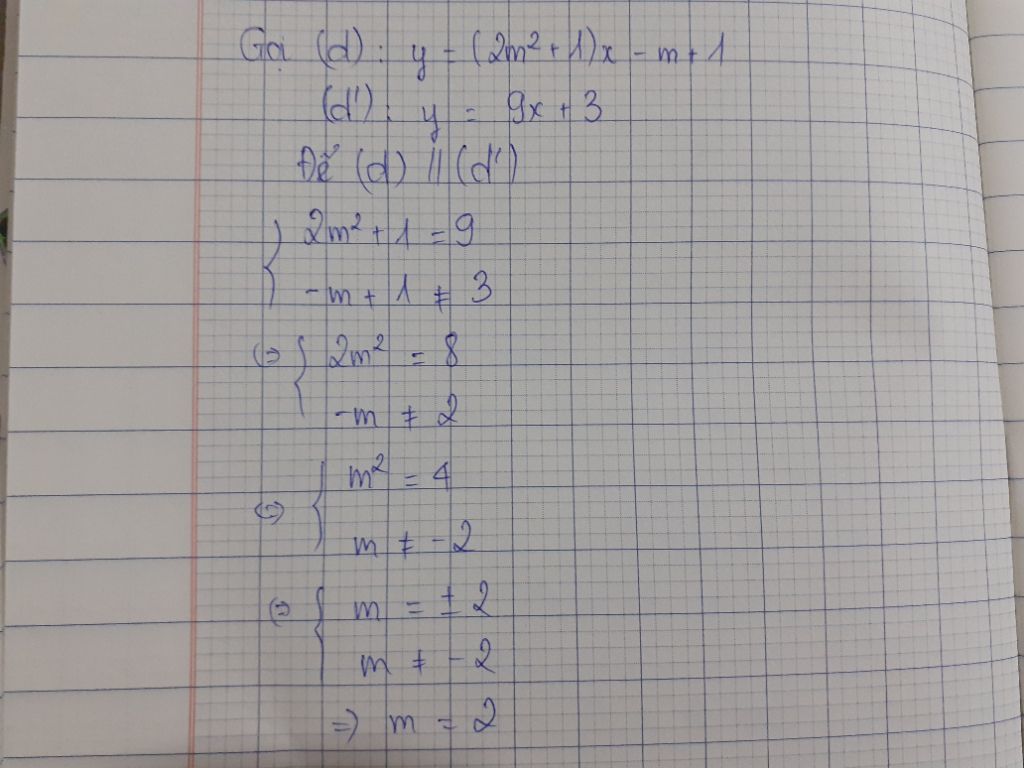 Gọi (d): y = (2m² + 1)x - m + 1
(d'): y = 9x + 3
Để (d) // (d')
{ 2m² + 1 = 9
-m + 1 ≠ 3
⇔ { 2m² = 8
-m ≠ 2
⇔ { m² = 4
m ≠ -2
⇔ { m = ± 2
m ≠ -2
⇒ m = 2